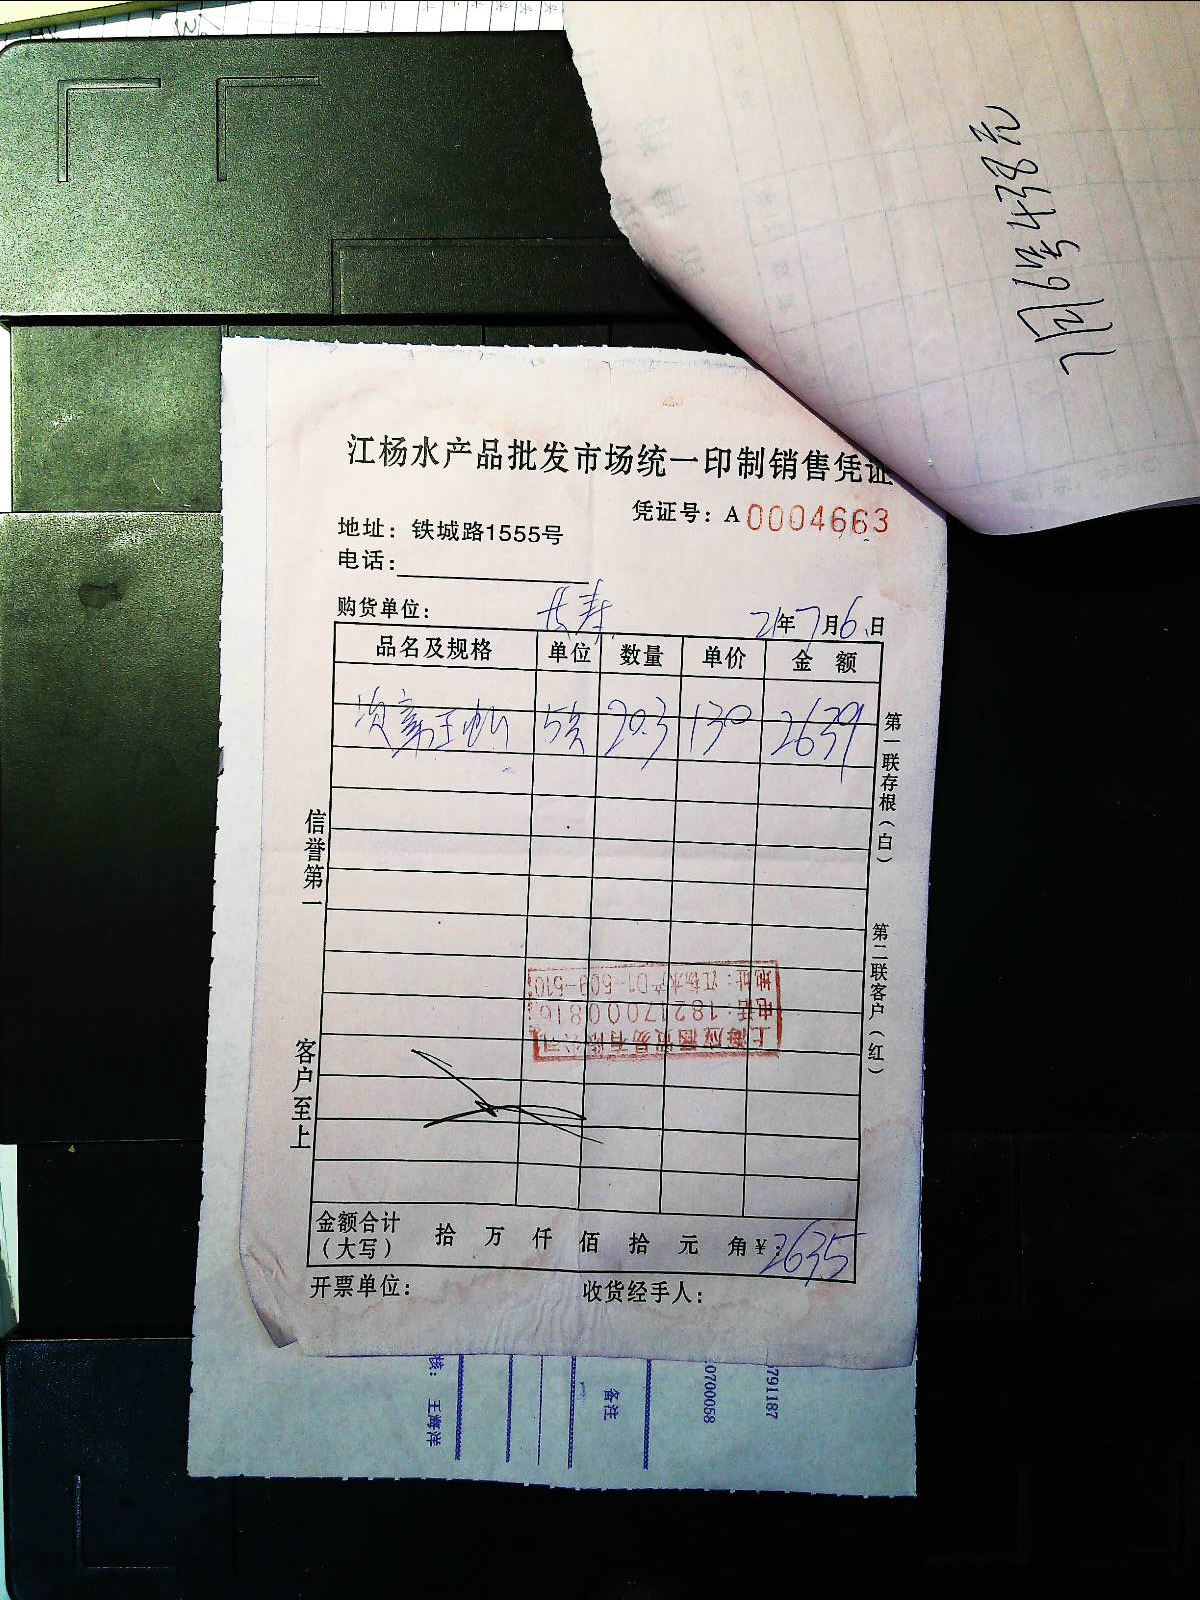 江杨水产品批发市场统一印制销售凭证
凭证号：A 0004663
地址：铁城路1555号
电话：
购货单位： 长寿 21年7月6日
品名及规格 单位 数量 单价 金额
5只 20.3 130 2639
信誉第一
客户至上
第一联存根（白）
第二联客户（红）
上海应 贸易有限公司
电话：18217000816
地址：江杨水产D1-509-510
金额合计（大写） 拾 万 仟 佰 拾 元 角 ¥：2635
开票单位： 收货经手人：
核： 王海洋
备注
0700058
791187